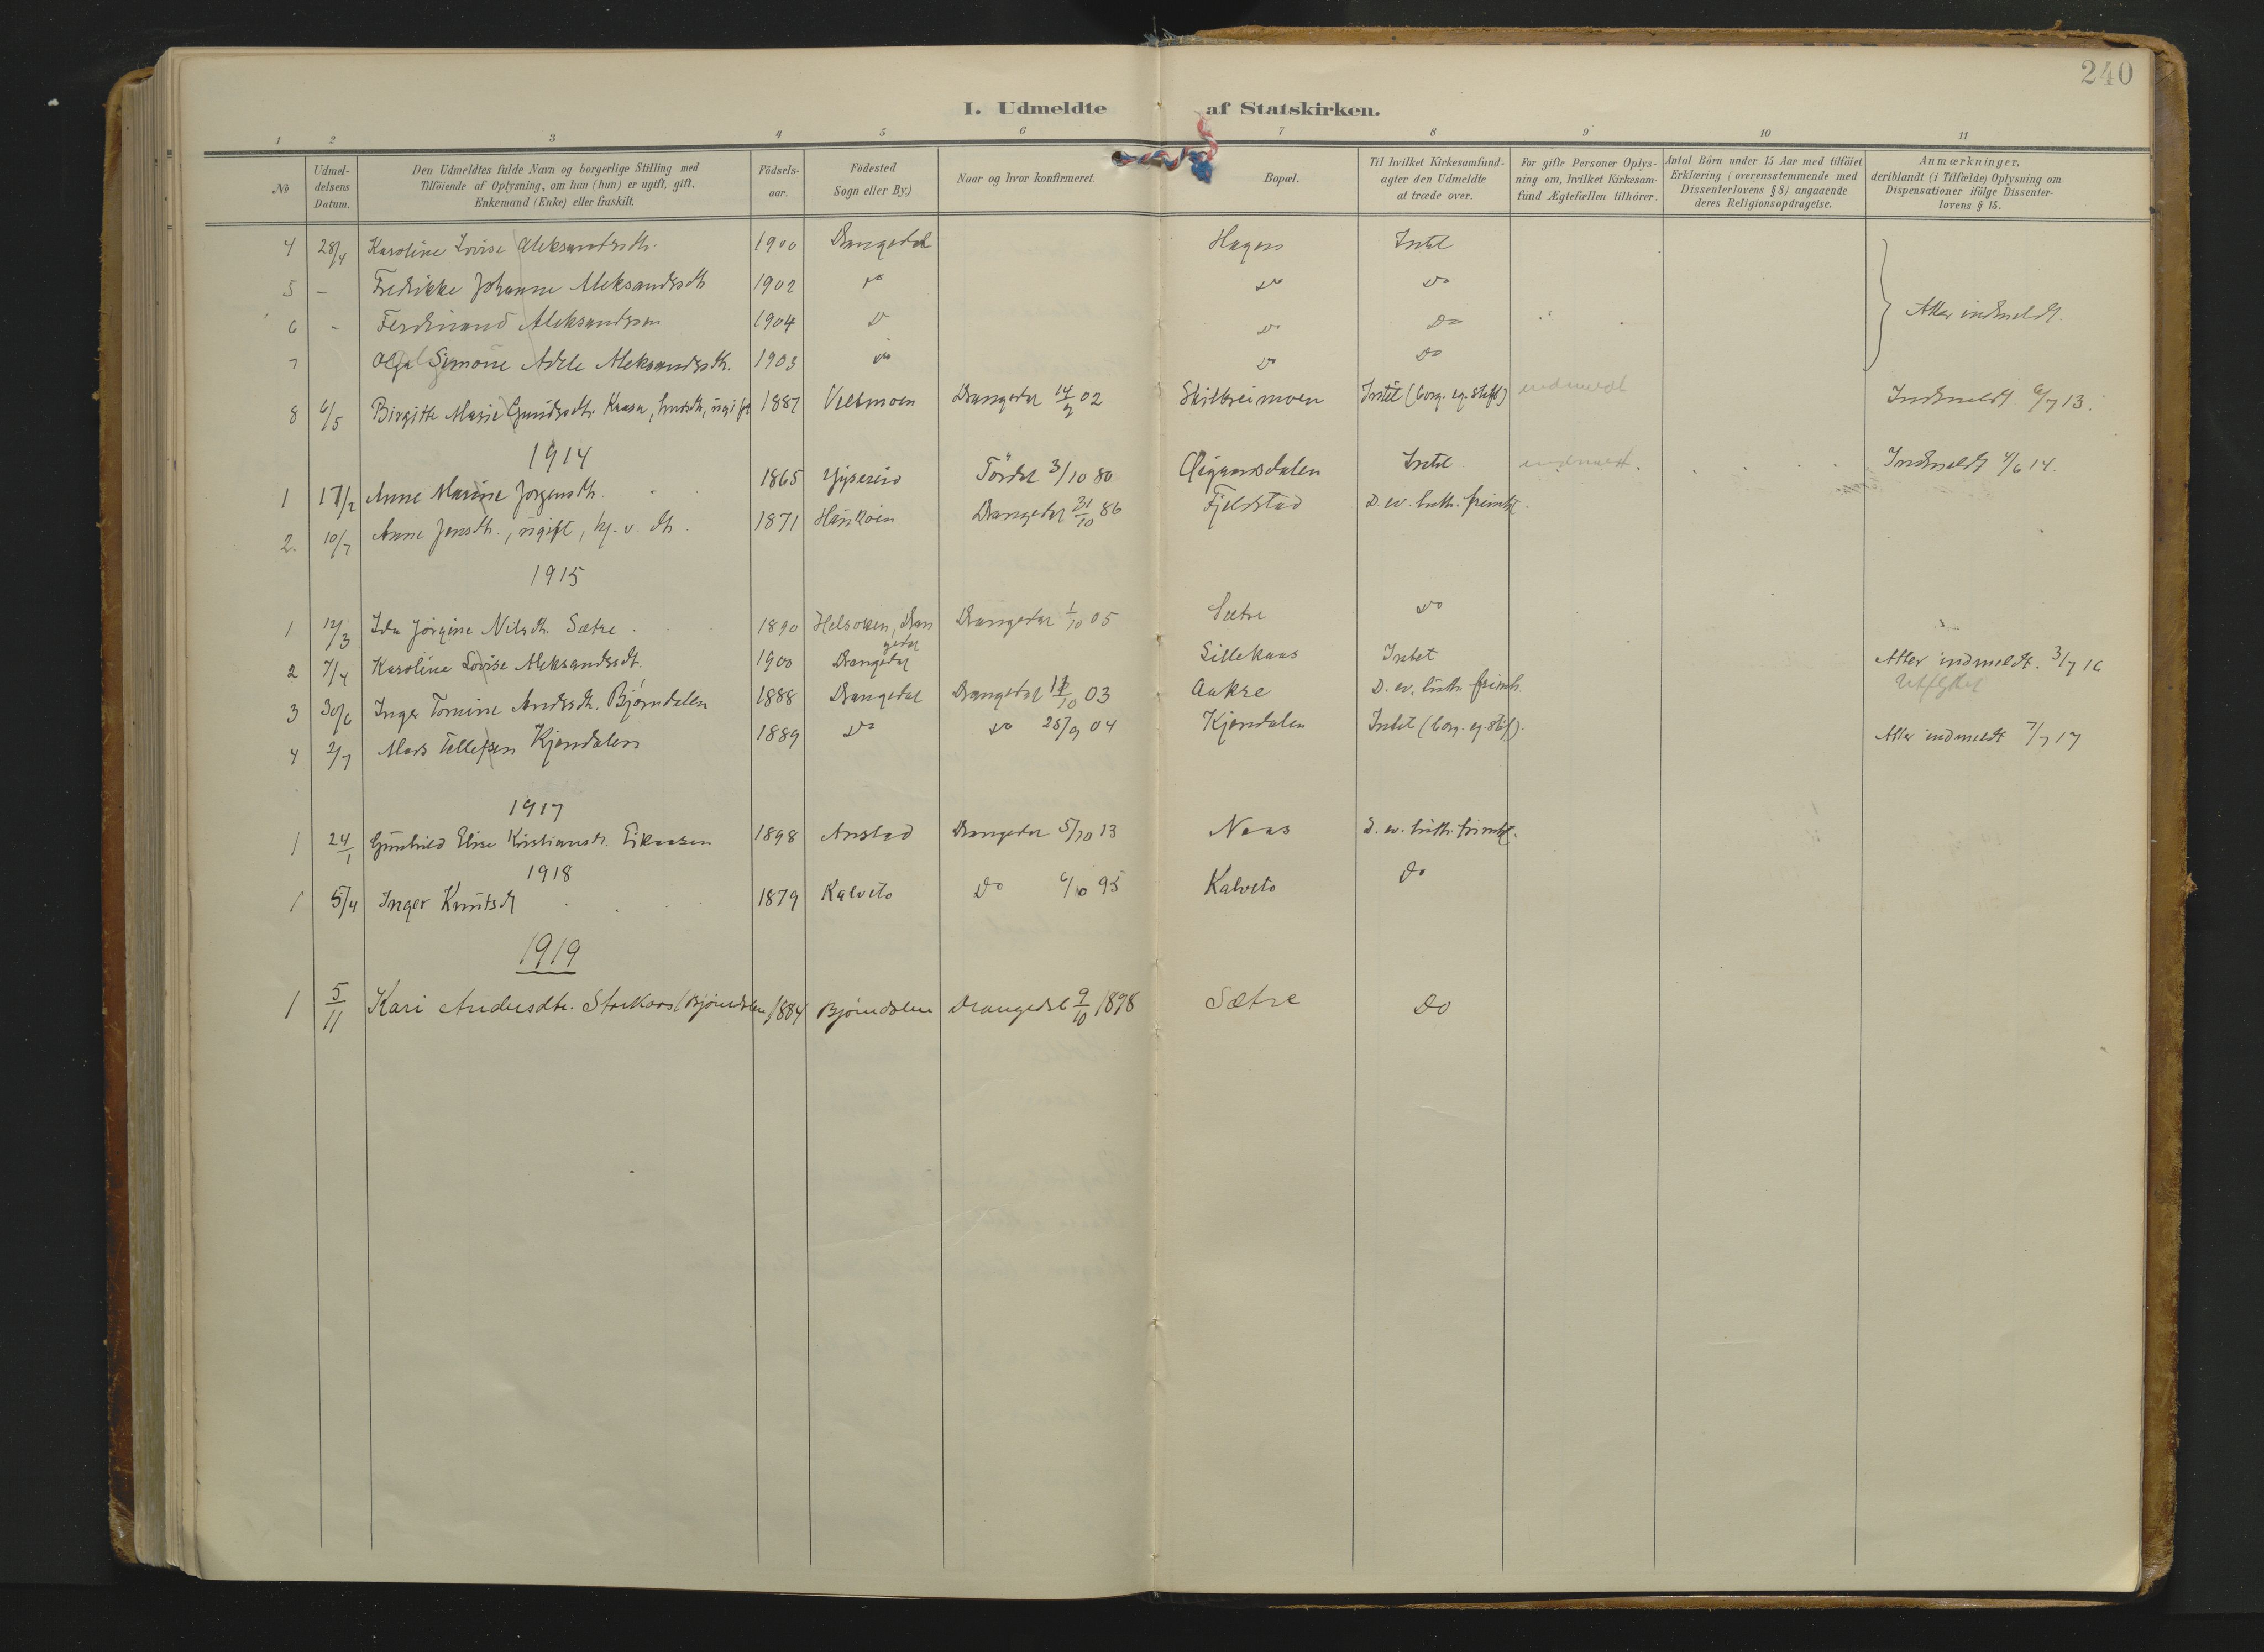 240
I. Udmeldte af Statskirken.
1 2 3 4 5 6 7 8 9 10 11
№ Udmeldelsens Datum. Den Udmeldtes fulde Navn og borgerlige Stilling med Tilföiende af Oplysning, om han (hun) er ugift, gift, Enkemand (Enke) eller fraskilt. Födselsaar. Födested Sogn eller By.) Naar og hvor konfirmeret. Bopæl. Til hvilket Kirkesamfund agter den Udmeldte at træde over. For gifte Personer Oplysning om, hvilket Kirkesamfund Ægtefællen tilhörer. Antal Börn under 15 Aar med tilföiet Erklæring (overensstemmende med Dissenterlovens § 8) angaaende deres Religionsopdragelse. Anmærkninger, deriblandt (i Tilfælde) Oplysning om Dispensationer ifölge Dissenterlovens § 15.
4 28/4 Karoline Lovise Aleksandersdtr. 1900 Drangedal Hagen Intet
5 - Fredrikke Johanne Aleksandersdtr 1902 do do do
6 - Ferdinand Aleksandersen 1904 do do do Atter indmeldt.
7 Olga Simone Adele Aleksandersdtr. 1903 do do do
8 6/5 Birgitte Marie Gundersdtr. Kaasa, ugift 1887 Vellmoen Drangedal 02 Intet (borg. eg. stift) indmeldt Indmeldt 6/7 13.
1914
1 17/2 Anne Marine Jørgensdtr. 1865 Tørdal 3/10 80 Intet indmeldt. Indmeldt 4/6 14.
2. 10/7 Anne Jensdtr., ugift 1871 Drangedal 31/10 86 Fjeldstad D. ev. luth. frimh.
1915
1 12/3 Ida Jørgine Nilsdtr. Sætre 1890 Drangedal Drangedal 1/10 05 Sætre do
2 7/4 Karoline Lovise Aleksandersdtr. 1900 Drangedal Sillekaas Intet Atter indmeldt. 3/7 16
Utflyttet
3 30/6 Inger Tomine Andersdtr. Bjørndalen 1888 Drangedal Drangedal 03 Aakre D. ev. luth. frimh.
4 2/7 Mads Tellefsen Kjendalen 1889 do do 25/9 04 Kjendalen Intet (borg. eg. stif). Atter indmeldt 7/7 17
1917
1 24/1 Gunhild Elise Kristiansdtr. Eikaasen 1898 Anstad Drangedal 5/10 13 Naas D. ev. luth. frimh.
1918
1 5/4 Inger Knutsdtr 1879 Kalveto Do 6/10 95 Kalveto Do
1919
1 5/11 Kari Andersdtr. Storkaas (Bjørndalen) 1884 Bjørndalen Drangedal 9/10 1898 Sætre Do